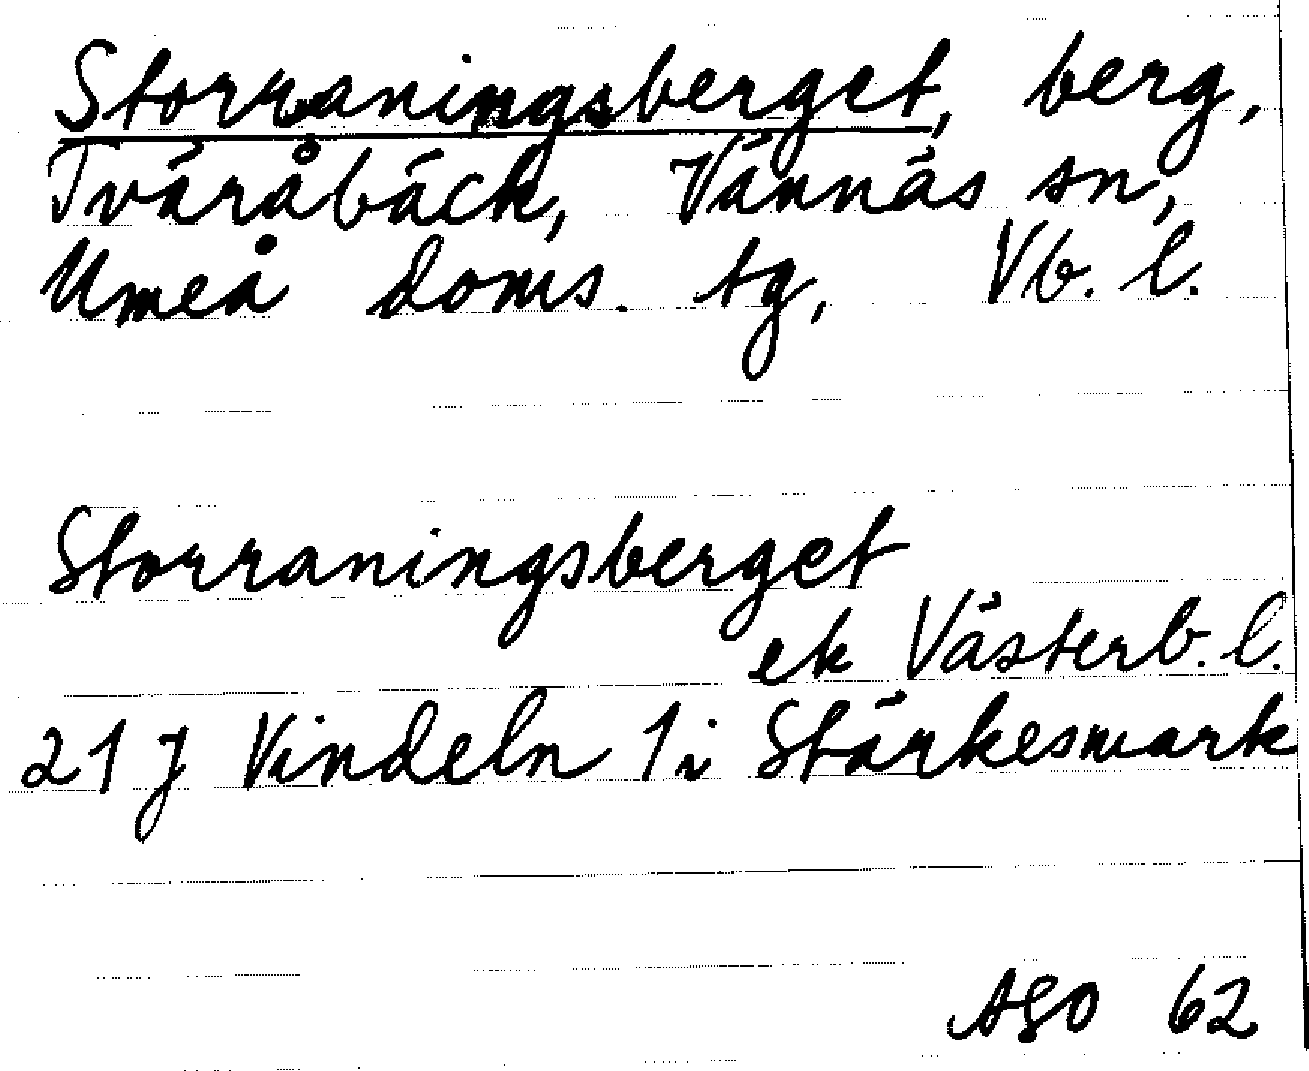 Storraningsberget, berg,
Tväråbäck, Vännäs sn,
Umeå doms. tg, Vb. l.
Storraningsberget
ek Västerb. l.
21 J Vindeln 1i Stärkesmark
ASO 62